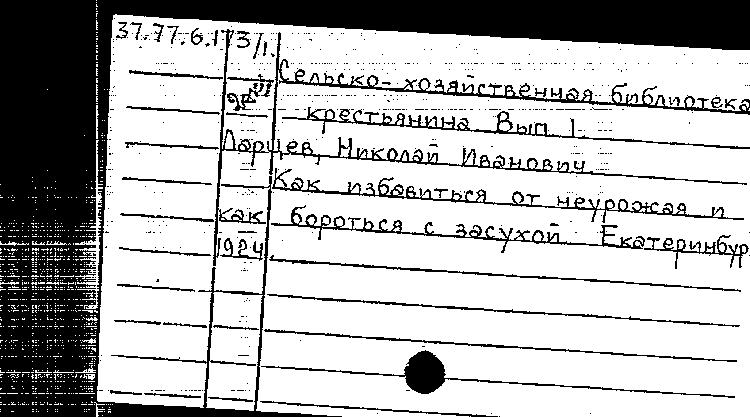 37.77.6.173/1.
Сельско-хозяйственная библиотека
крестьянина Вып 1.
Ларцев, Николай Иванович.
Как избавиться от неурожая и
как бороться с засухой Екатеринбур
1924.